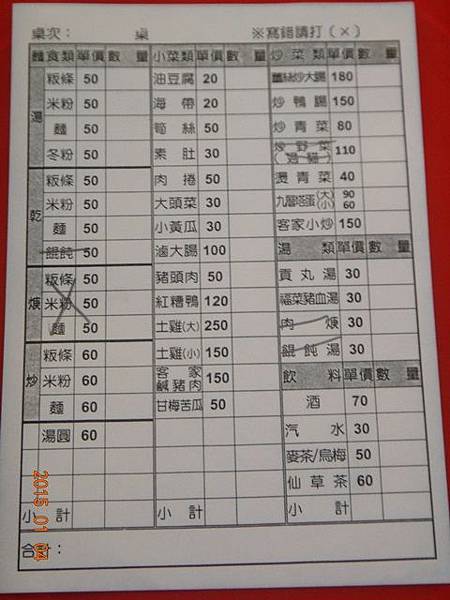 桌次： 桌 ※寫錯請打（×）
麵食類 單價 數量 小菜類 單價 數量 炒菜類 單價 數量
湯
粄條 50
米粉 50
麵 50
冬粉 50
乾
粄條 50
米粉 50
麵 50
餛飩 50
粄條 50
米粉 50
麵 50
炒
粄條 60
米粉 60
麵 60
湯圓 60
小計
油豆腐 20
海帶 20
筍絲 50
素肚 30
肉捲 50
大頭菜 30
小黃瓜 30
滷大腸 100
豬頭肉 50
紅糟鴨 120
土雞(大) 250
土雞(小) 150
客家鹹豬肉 150
甘梅苦瓜 50
小計
薑絲炒大腸 180
炒鴨腸 150
炒青菜 80
炒野菜 110
燙青菜 40
九層塔蛋(大) 90
(小) 60
客家小炒 150
湯類 單價 數量
貢丸湯 30
福菜豬血湯 30
肉焿 30
餛飩湯 30
飲料 單價 數量
酒 70
汽水 30
麥茶/烏梅 50
仙草茶 60
小計
合計：
2015 01 04